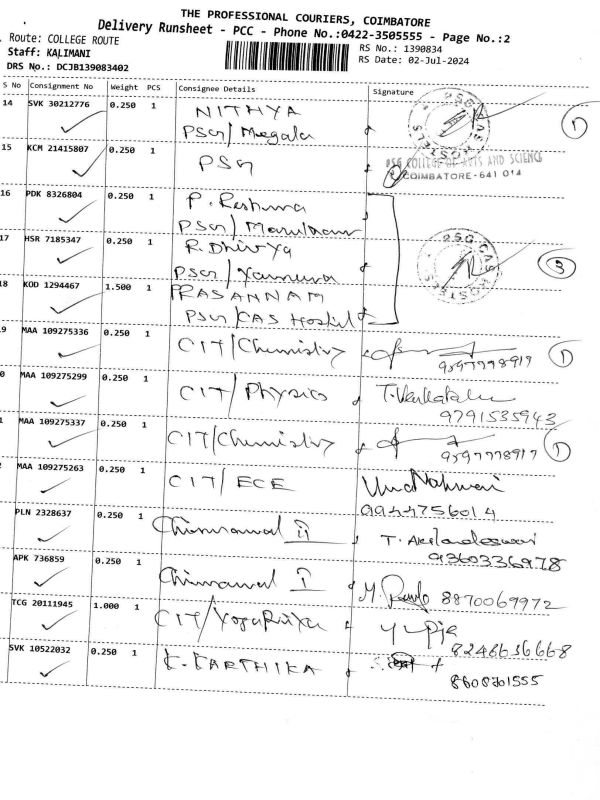 THE PROFESSIONAL COURIERS, COIMBATORE
Delivery Runsheet - PCC - Phone No.:0422-3505555 - Page No.:2
Route: COLLEGE ROUTE
RS No.: 1390834
Staff: KALIMANI
RS Date: 02-Jul-2024
DRS No.: DCJB139083402
S No Consignment No Weight PCS Consignee Details Signature
14 SVK 30212776 0.250 1 NITHYA
PSG/Megala
1
15 KCM 21415807 0.250 1 PSG
PSG COLLEGE OF ARTS AND SCIENCE
COIMBATORE-641 014
16 PDK 8326804 0.250 1 P. Reshma
PSG/
17 HSR 7185347 0.250 1 R. Dhivya
PSG/Yamuna
PSG CAS HOSTELS
3
18 KOD 1294467 1.500 1 PRASANNAM
PSG/CAS Hostel
9 MAA 109275336 0.250 1 CIT/Chemistry
9597778917
1
0 MAA 109275299 0.250 1 CIT/Physics T.
9791535943
1 MAA 109275337 0.250 1 CIT/Chemistry
9597778917
1
MAA 109275263 0.250 1 CIT/ECE
9944756014
PLN 2328637 0.250 1 II T. Akilandeswari
9360336978
APK 736859 0.250 1 I M. 8870069972
TCG 20111945 1.000 1 CIT/
8248636668
SVK 10522032 0.250 1 K. KARTHIKA
8608701555